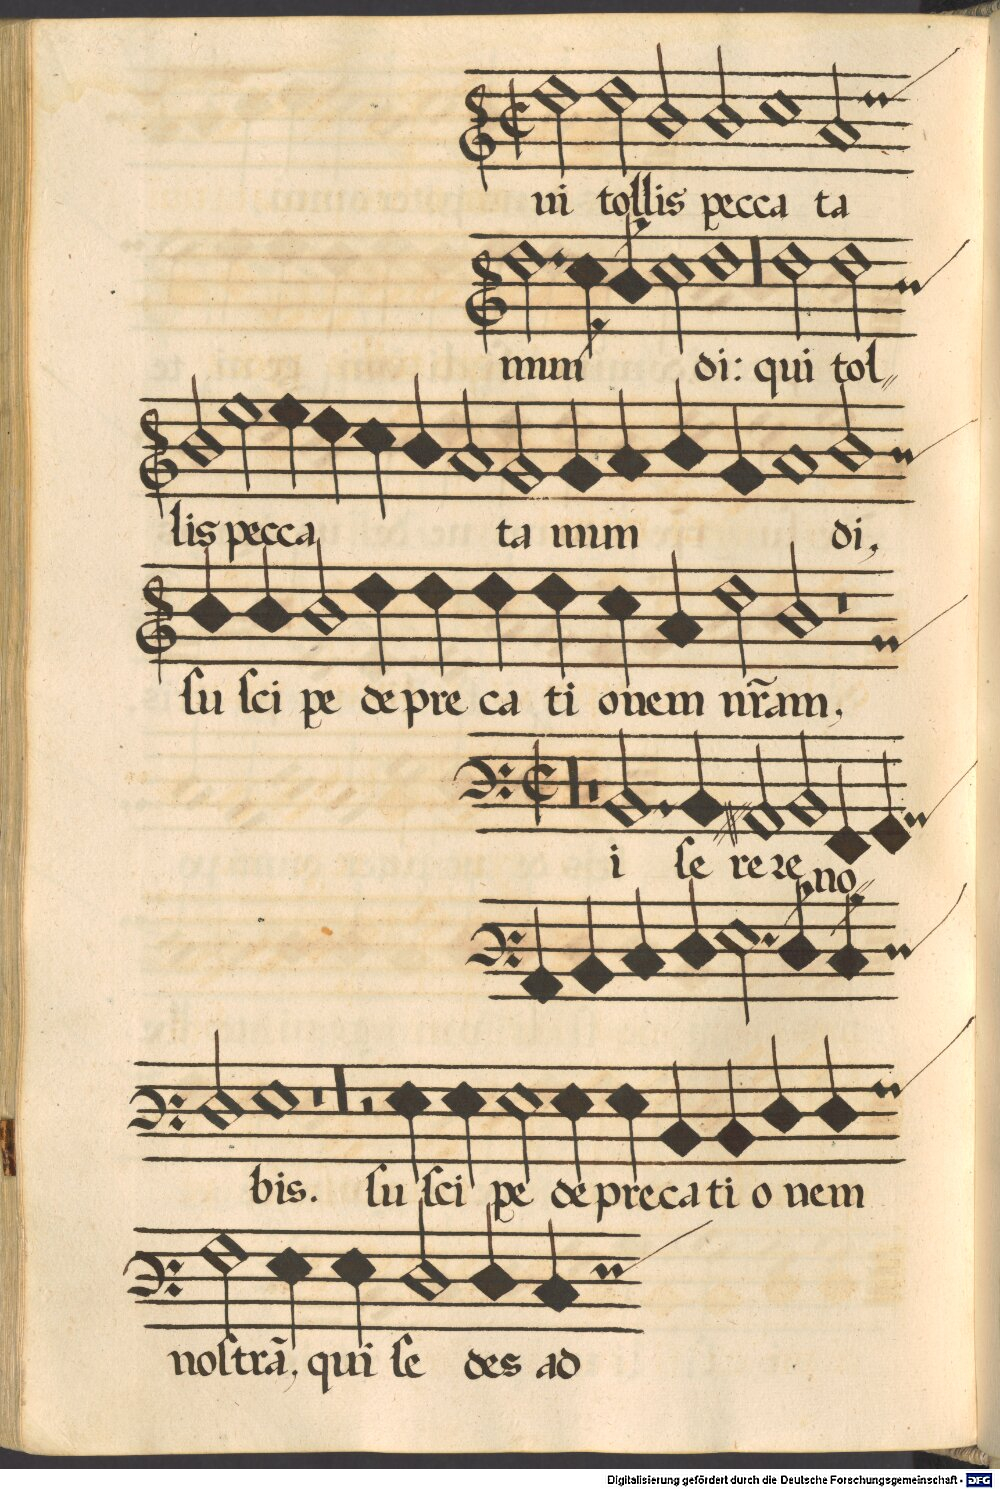 ui tollis pecca ta
mun di: qui tol„
lis pecca ta mun di,
ſu ſci pe de pre ca ti onem nr̄am,
i ſe re re no„
bis. ſu ſci pe de preca ti o nem
noſtrā, qui ſe des ad
Digitalisierung gefördert durch die Deutsche Forschungsgemeinschaft - DFG